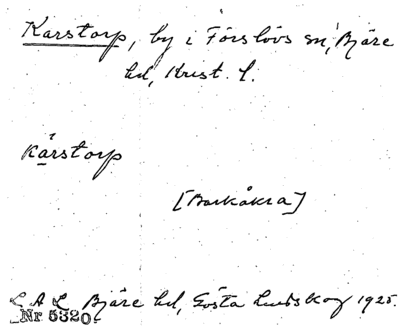 Karstorp, by i Förslövs sn, Bjäre
hd, Krist. l.
kårstorp
[Barkåkra]
L A L Bjäre hd, Gösta Lundskog 1925.
Nr 5320.